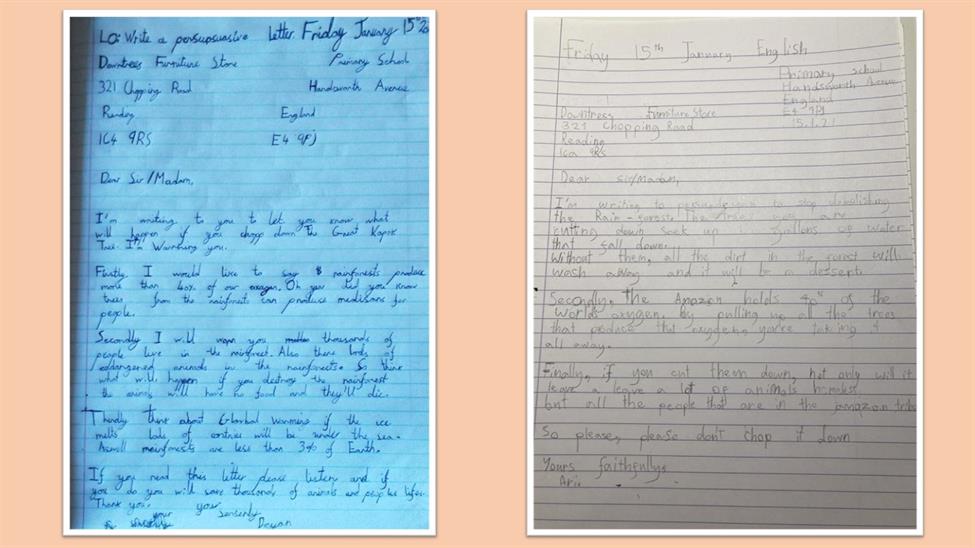 LO: Write a persupsuasive Letter Friday January 15th
Downtress Furniture Store Primary School
321 Chopping Road Handsworth Avenue
Reading England
IC4 9RS E4 9PJ
Dear Sir/Madam,
I'm writing to you to let you know what
will happen if you chopp down the Great Kapok
Tree. I'm Warnning you.
Firstly I would like to say rainforests produce
more than 40% of our Oh yes did you know
trees from the rainforests can produce medisons for
people.
Secondly I will you thousands of
people live in the rainforest. Also there lods of
endangered animals in the rainforests. So think
what will happen if you destroy the rainforest
the animls will have no food and they'll die.
Thirdly think about Glorbal warming if the ice
melts lods of contries will be under the sea.
Aswell rainforests are less than 3% of Earth.
If you read this letter please listen and if
you do you will save thousands of animals and peoples lifes.
Thank you. your
Dewan
Friday 15th January English
Primary school
Handsworth Avenue
England
Downtress Furniture Store E4 9PJ
321 Chopping Road 15.1.21
Reading
Ica 9RS
Dear sir/Madam,
I'm writing to you to stop demolishing
the Rain-forest. The trees you are
cutting down soak up gallons of water
that fall down.
Without them, all the dirt in the forest will
wash away and it will be a dessert.
Secondly, the Amazon holds 40% of the
worlds oxygen, by pulling up all the trees
that produce that you're taking it
all away.
Finally, if you cut them down, not only will it
leave a leave a lot of animals homeless
but all the people that are in the amazon tribe
So please, please don't chop it down
Yours faithfullys